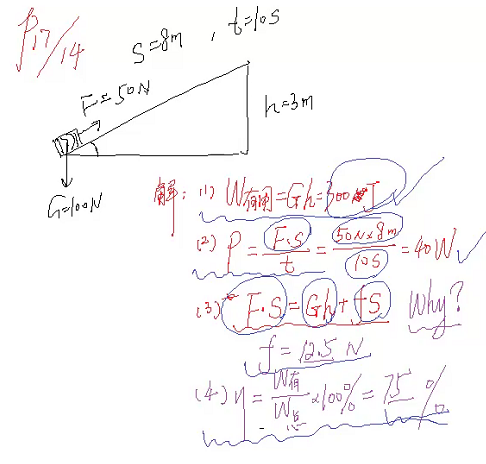 P17/14
S=8m , t=10S
F=50N
h=3m
G=100N
解: (1) W有用=Gh=300J
(2) P=F·S/t=50N×8m/10S=40W
(3) F·S=Gh+fS Why?
f=12.5N
(4) η=W有/W总×100%=75%